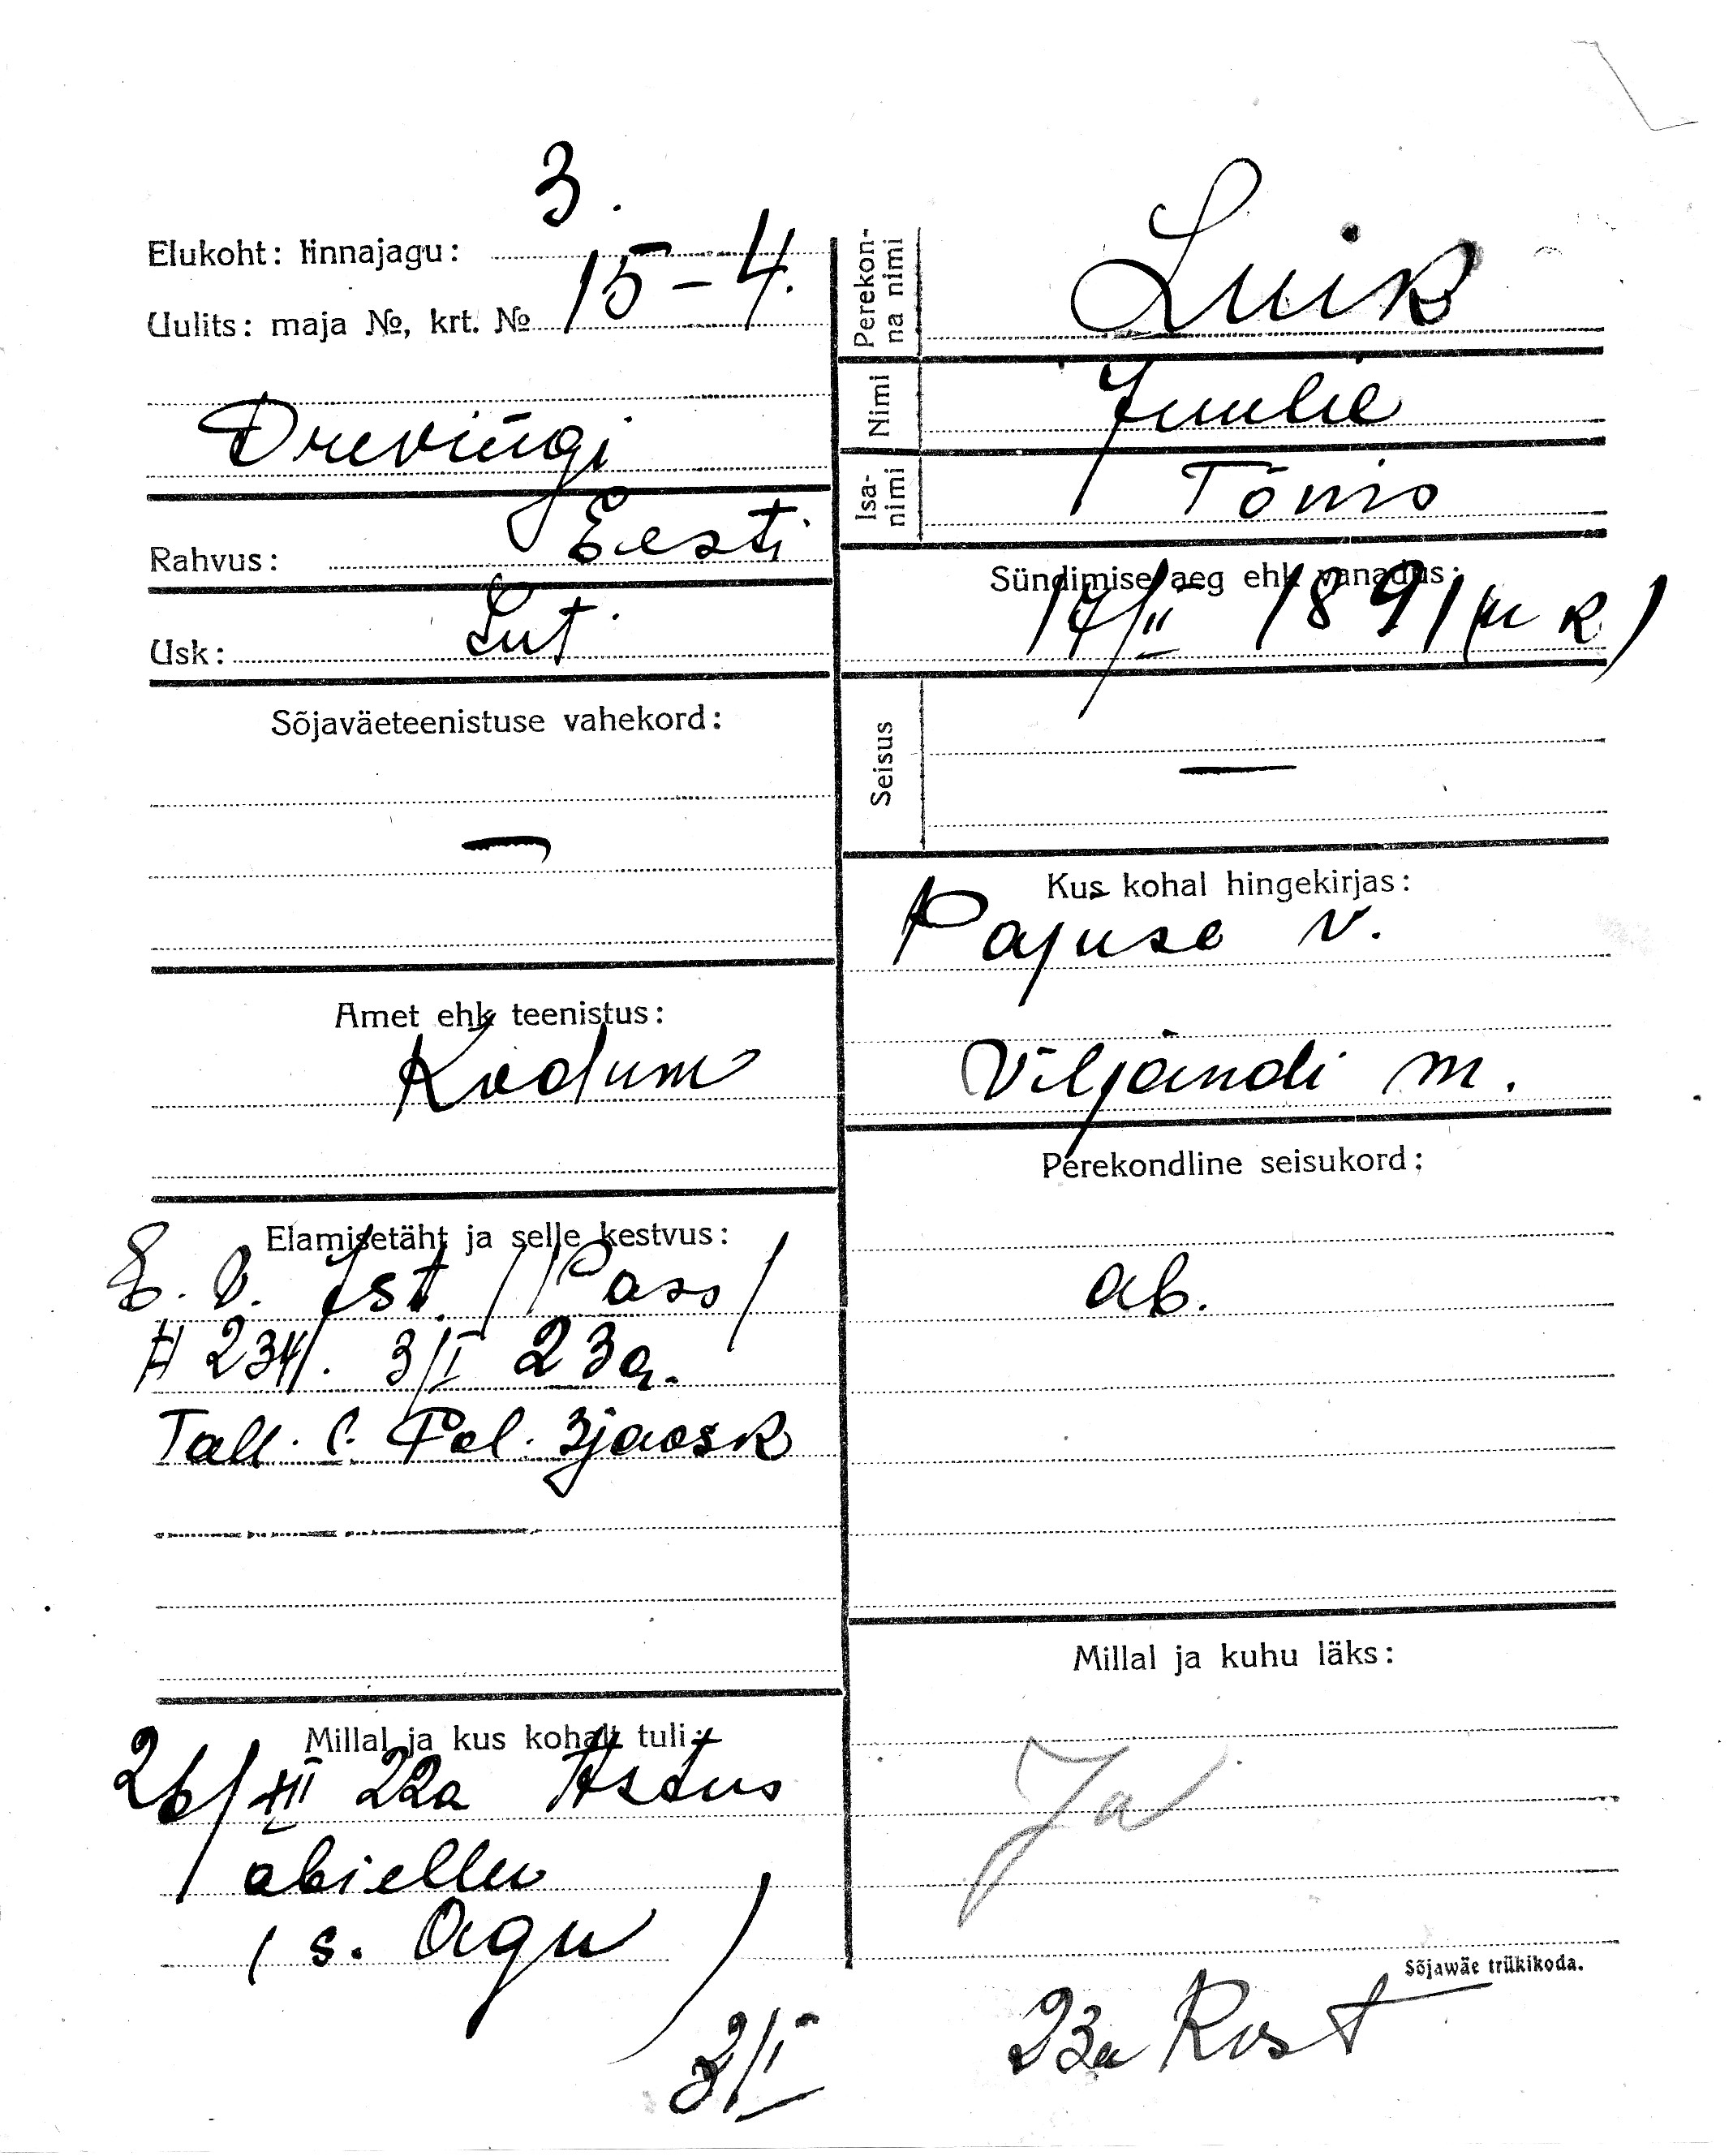 3.
Elukoht: linnajagu:
15-4.
Uulits: maja №, krt. №
Drevingi
Rahvus: Eesti
Usk: Lut.
Sõjaväeteenistuse vahekord:
—
Amet ehk teenistus:
Kodum
Elamisetäht ja selle kestvus:
E. V. Ist. / Pass /
# 2341. 3/I 23a.
Tall. l. Pol. 3jaosk
Millal ja kus kohalt tuli:
26/XII 22a Astus
abiellu
( s. Agu )
Perekon-
na nimi
Luik
Nimi
Juulie
Isa-
nimi
Tõnis
Sündimise aeg ehk vanadus:
14/II 1891 (u k)
Seisus
—
Kus kohal hingekirjas:
Pajuse v.
Viljandi m.
Perekondline seisukord:
ab.
Millal ja kuhu läks:
Ja
Sõjawäe trükikoda.
3/I 23a